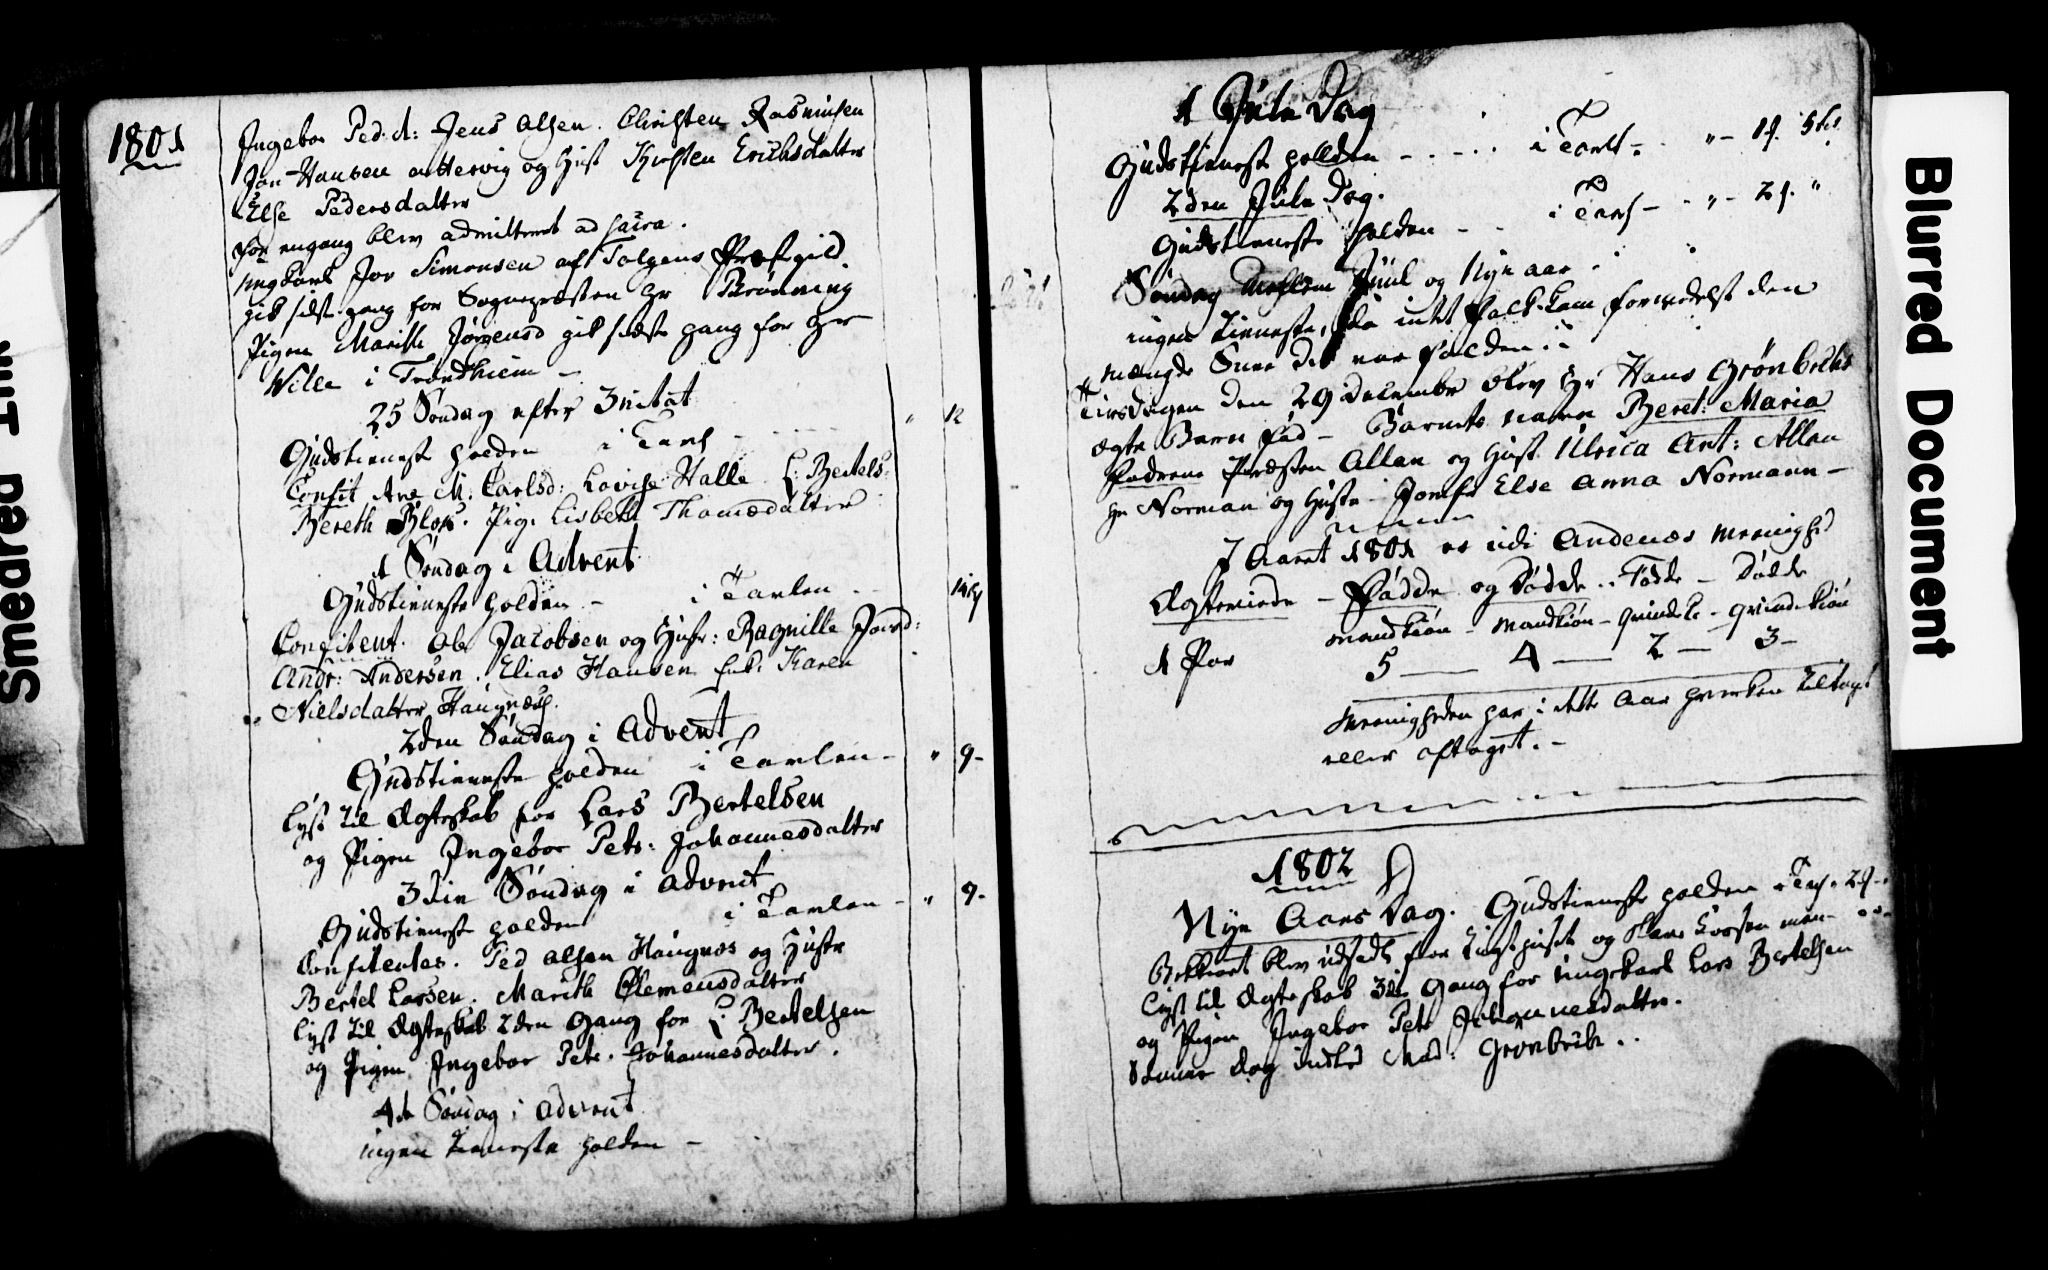 1801
Ingebor Ped: d: Jens Olsen. Christen Rasmusen
Jon Hansen og Hust Kirsten Erichsdatter
Else Pedersdatter
for engang blev admitteret ad sacra.
ungkarl Jon Simonsen af Tolgens Præstgild
gik sidste gang for Sognepræsten Hr Brönning
Pigen Marith Jörgensd gik sidste gang for Hr
Wille i Trondhiem –
25 Söndag efter Trinitat
Gudstieneste holden i 12
Confit Ane M. Carlsd: Lovise Halle L: Bertels:
Bereth Blox. Pig. Lisbeth Thomædatter
1 Söndag i Advent
Gudstieneste holden – i
Confitent. Ole Jacobsen og Hustr: Ragnille Jonsd:
Andr: Andersen. Elias Hansen Enk: Karen
Nielsdatter Haugnæs.
2den Söndag i Advent
Gudstieneste holden i – " 9–
Lyst til Ægteskab for Lars Bertelsen
og Pigen Ingebor Petr: Johannesdatter
3die Söndag i Advent
Gudstieneste holden i – " 9–
Confitentes. Ped Olsen Haugnæs og Hustr
Bertel Larsen. Marith Clemensdatter
Lyst til Ægteskab 2den Gang for L: Bertelsen
og Pigen Ingebor Petr. Johannesdatter.
4de Söndag i Advent
ingen tieneste holden –
1 Jule Dag
Gudstieneste holden – i
2den Jule Dag.
Gudstieneste holden – i
Söndag Mellem Juul og Nyeaar
ingen tieneste, da intet Folk kom formedelst den
mængde Snee der var falden
Tirsdagen den 29 December blev Hr Hans Grönbechs
ægte Barn föd – Barnets navn Beret: Maria
Fadrene Præsten Allan og Hust. Ulrica Ant: Allan
Hr Norman og Hustr. Jomfr Else Anna Normann –
I Aaret 1801 er udi Andenæs Menighed
Ægteviede – Födde og Dödde. Födde – Dödde
Mandkiön – Mandkiön – Qvindek – Qvindekiön
1 Par 5 — 4 — 2 — 3 –
Menigheden har i dette Aar hverken tiltaget
eller aftaget. –
1802
Nye Aars Dag. Gudstieneste holden
blev udsadt for og
Lyst til Ægteskab 3die Gang for ungekarl Lars Bertelsen
og Pigen Ingebor Petr Johannesdatter.
Samme Dag Mad: Grönbech..
Smedred Ink
Blurred Document